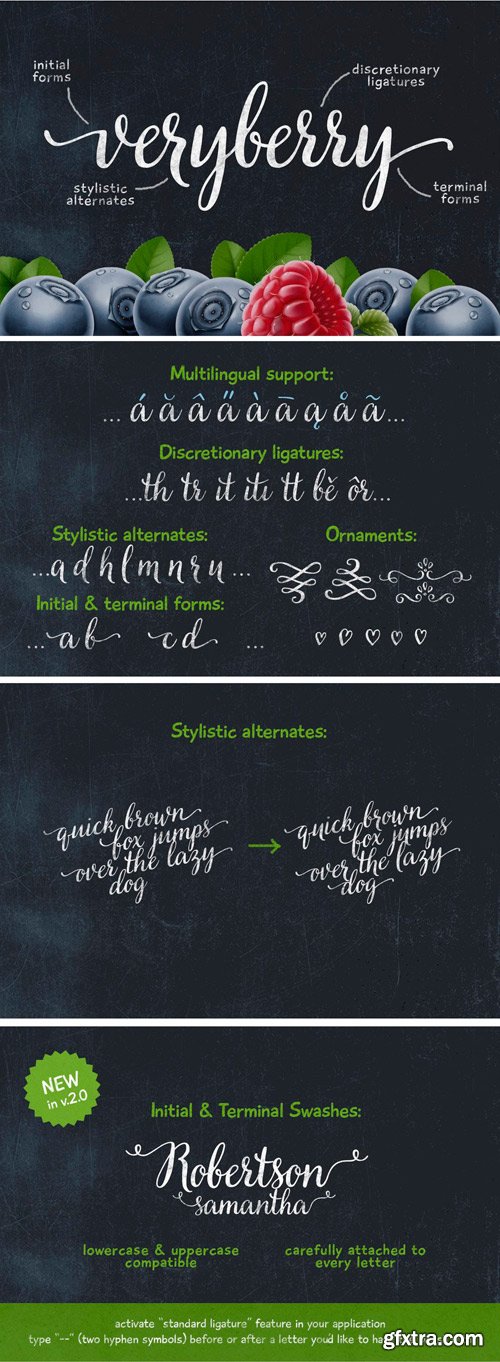 initial
forms
discretionary
ligatures
veryberry
stylistic
alternates
terminal
forms
Multilingual support:
... á ă â a̋ à ā ą å ã ...
Discretionary ligatures:
...th tr it iti tt bě ôr...
Stylistic alternates:
...a d h l m n r u ...
Ornaments:
Initial & terminal forms:
... a b c d ...
Stylistic alternates:
quick brown
fox jumps
over the lazy
dog
→
quick brown
fox jumps
over the lazy
dog
NEW
in v.2.0
Initial & Terminal Swashes:
Robertson
samantha
lowercase & uppercase
compatible
carefully attached to
every letter
activate "standard ligature" feature in your application
type "--" (two hyphen symbols) before or after a letter you'd like to ha
gfxtra.com